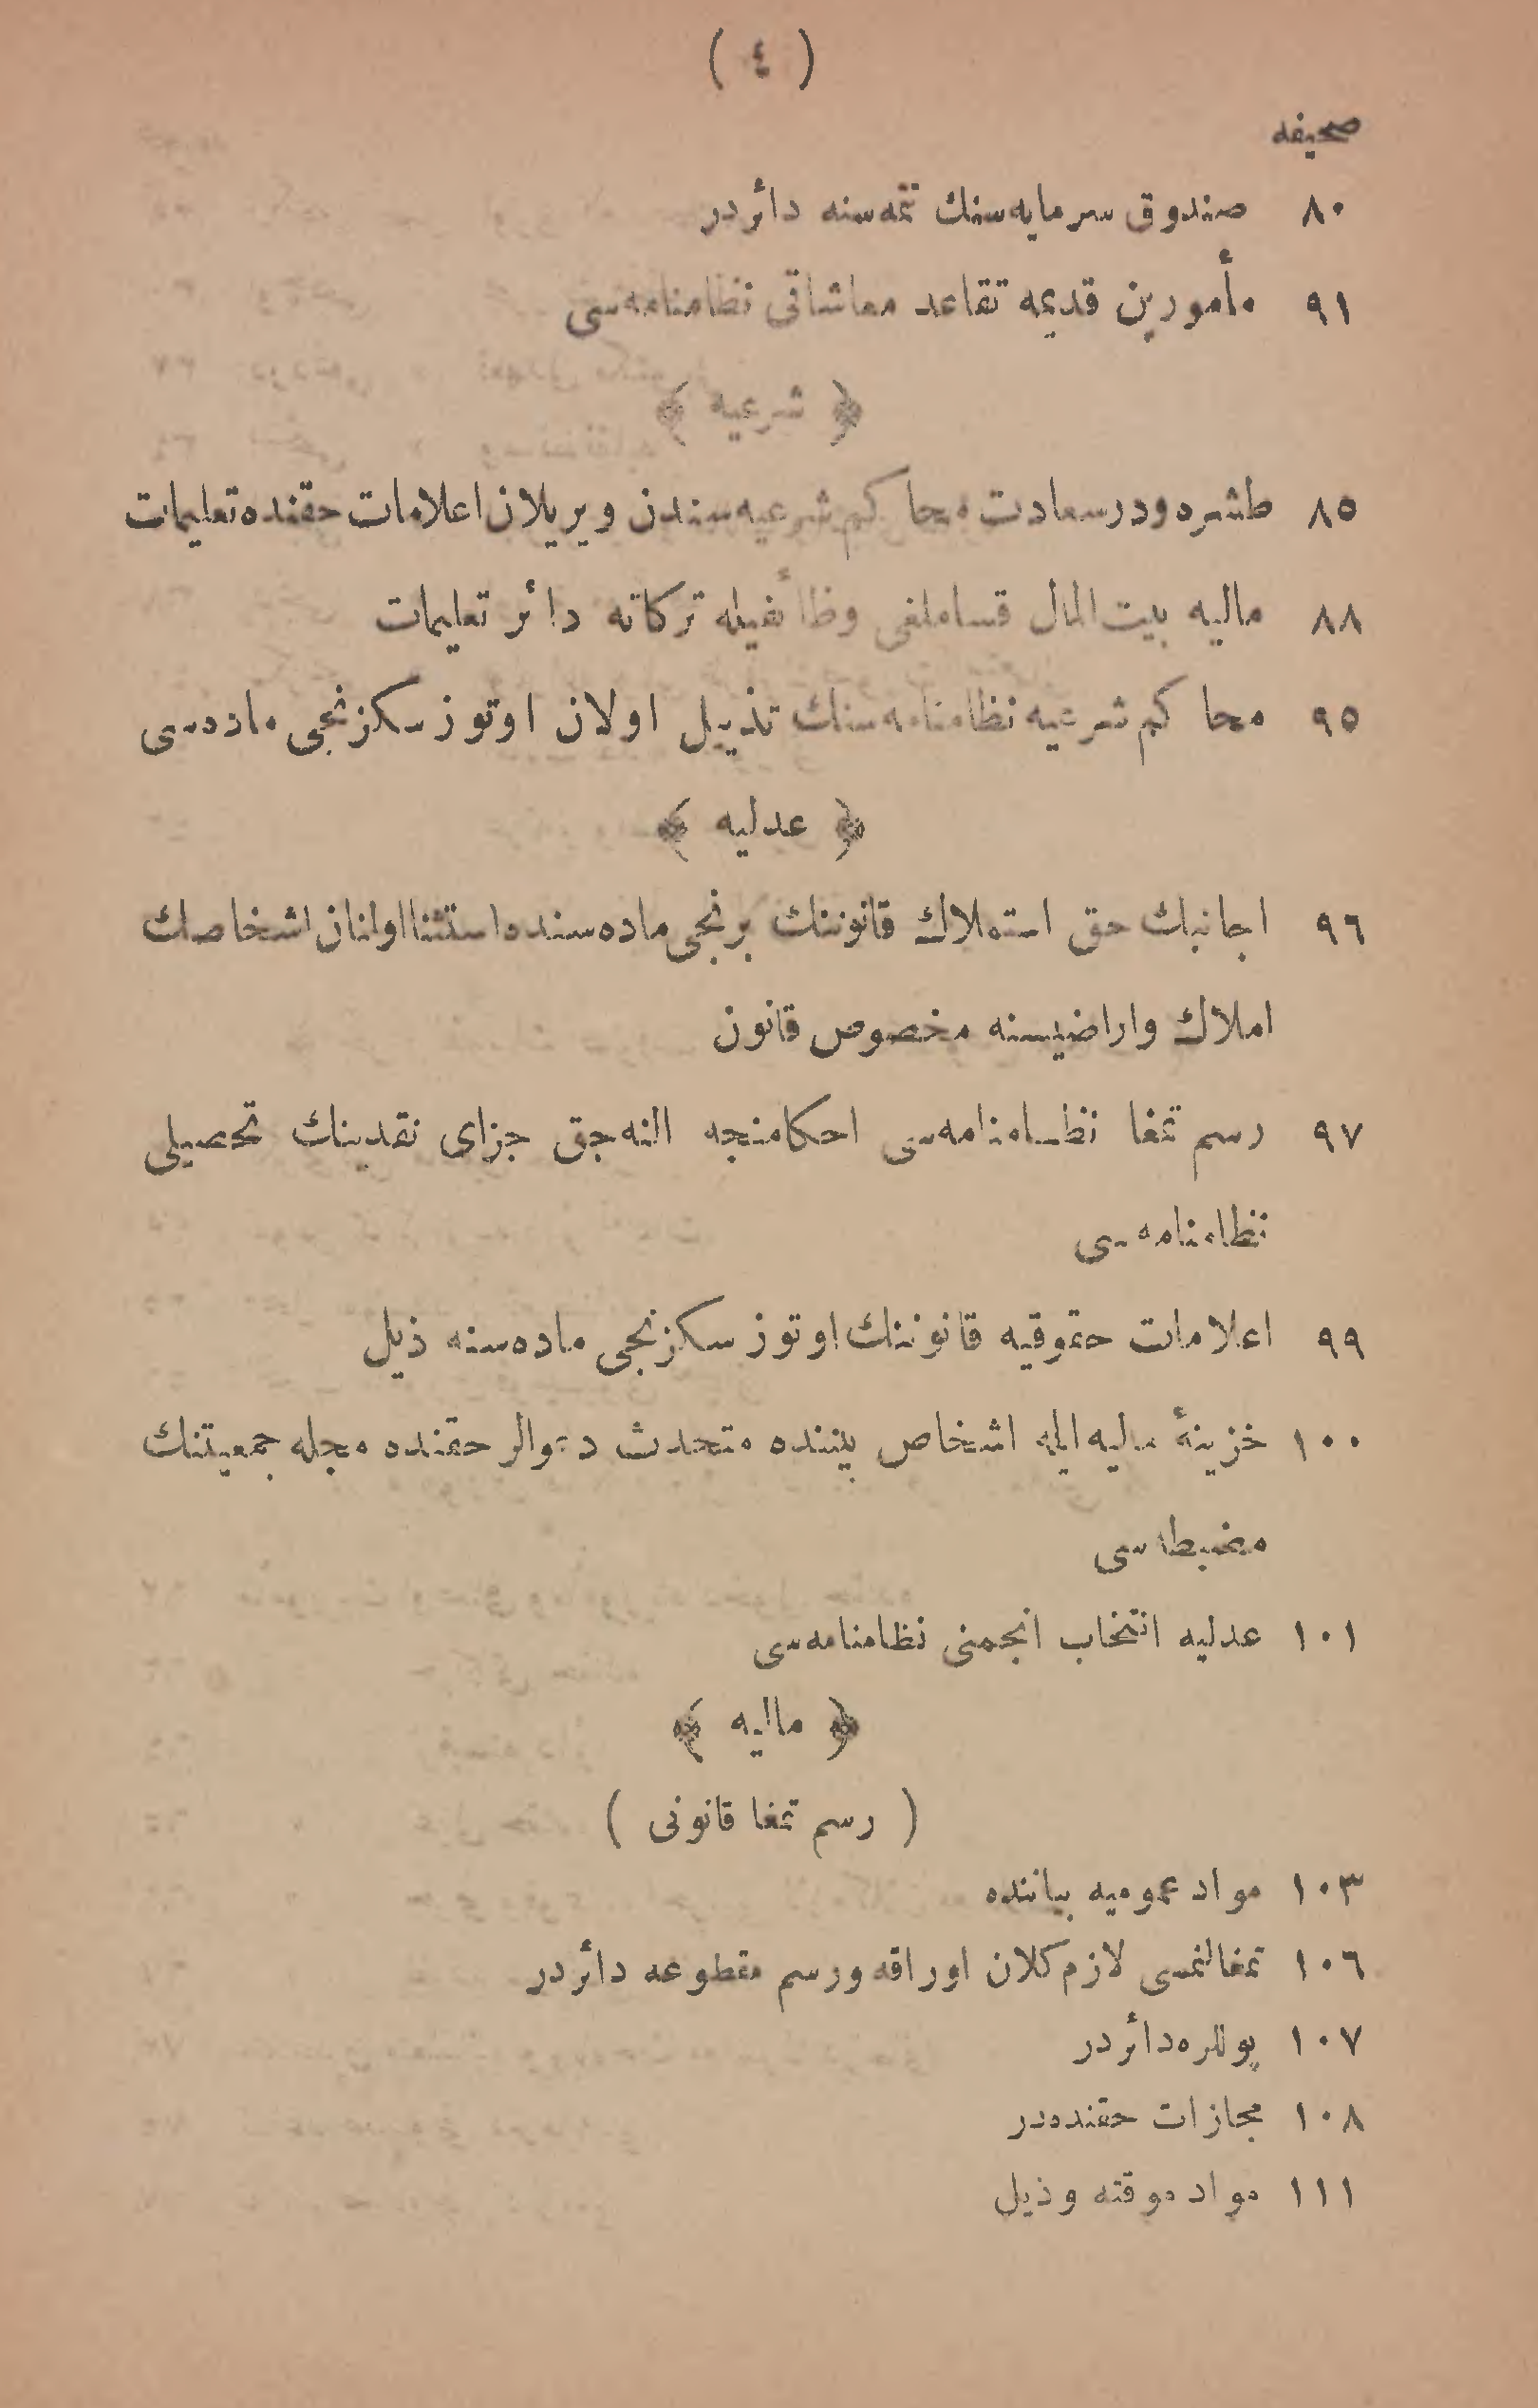 ( ٤ )
صحيفه
٨٠ صندوق سرمايه‌سنك تتمه‌سنه دائردر
٩١ مأمورين قديمه تقاعد معاشاتى نظامنامه‌سى
﴿ شرعيه ﴾
٨٥ طشره ودرسعادت محاكم شرعيه‌سندن ويريلان اعلامات حقنده تعليمات
٨٨ ماليه بيت‌المال قساملغى وظائفيله تركاته دائر تعليمات
٩٥ محاكم شرعيه نظامنامه‌سنك تذييل اولان اوتوز سكزنجى ماده‌سى
﴿ عدليه ﴾
٩٦ اجانبك حق استملاك قانوننك برنجى ماده‌سنده استثنا اولنان اشخاصك
املاك واراضيسنه مخصوص قانون
٩٧ رسم تمغا نظامنامه‌سى احكامنجه النه‌جق جزاى نقدينك تحصيلى
نظامنامه‌سى
٩٩ اعلامات حقوقيه قانوننك اوتوز سكزنجى ماده‌سنه ذيل
١٠٠ خزينهٔ ماليه ايله اشخاص بيننده متحدث دعوالر حقنده مجله جمعيتنك
مضبطه‌سى
١٠١ عدليه انتخاب انجمنى نظامنامه‌سى
﴿ ماليه ﴾
( رسم تمغا قانونى )
١٠٣ مواد عموميه بياننده
١٠٦ تمغالنمسى لازم كلان اوراقه ورسم مقطوعه دائردر
١٠٧ پوللره دائردر
١٠٨ مجازات حقنده‌در
١١١ مواد موقته وذيل